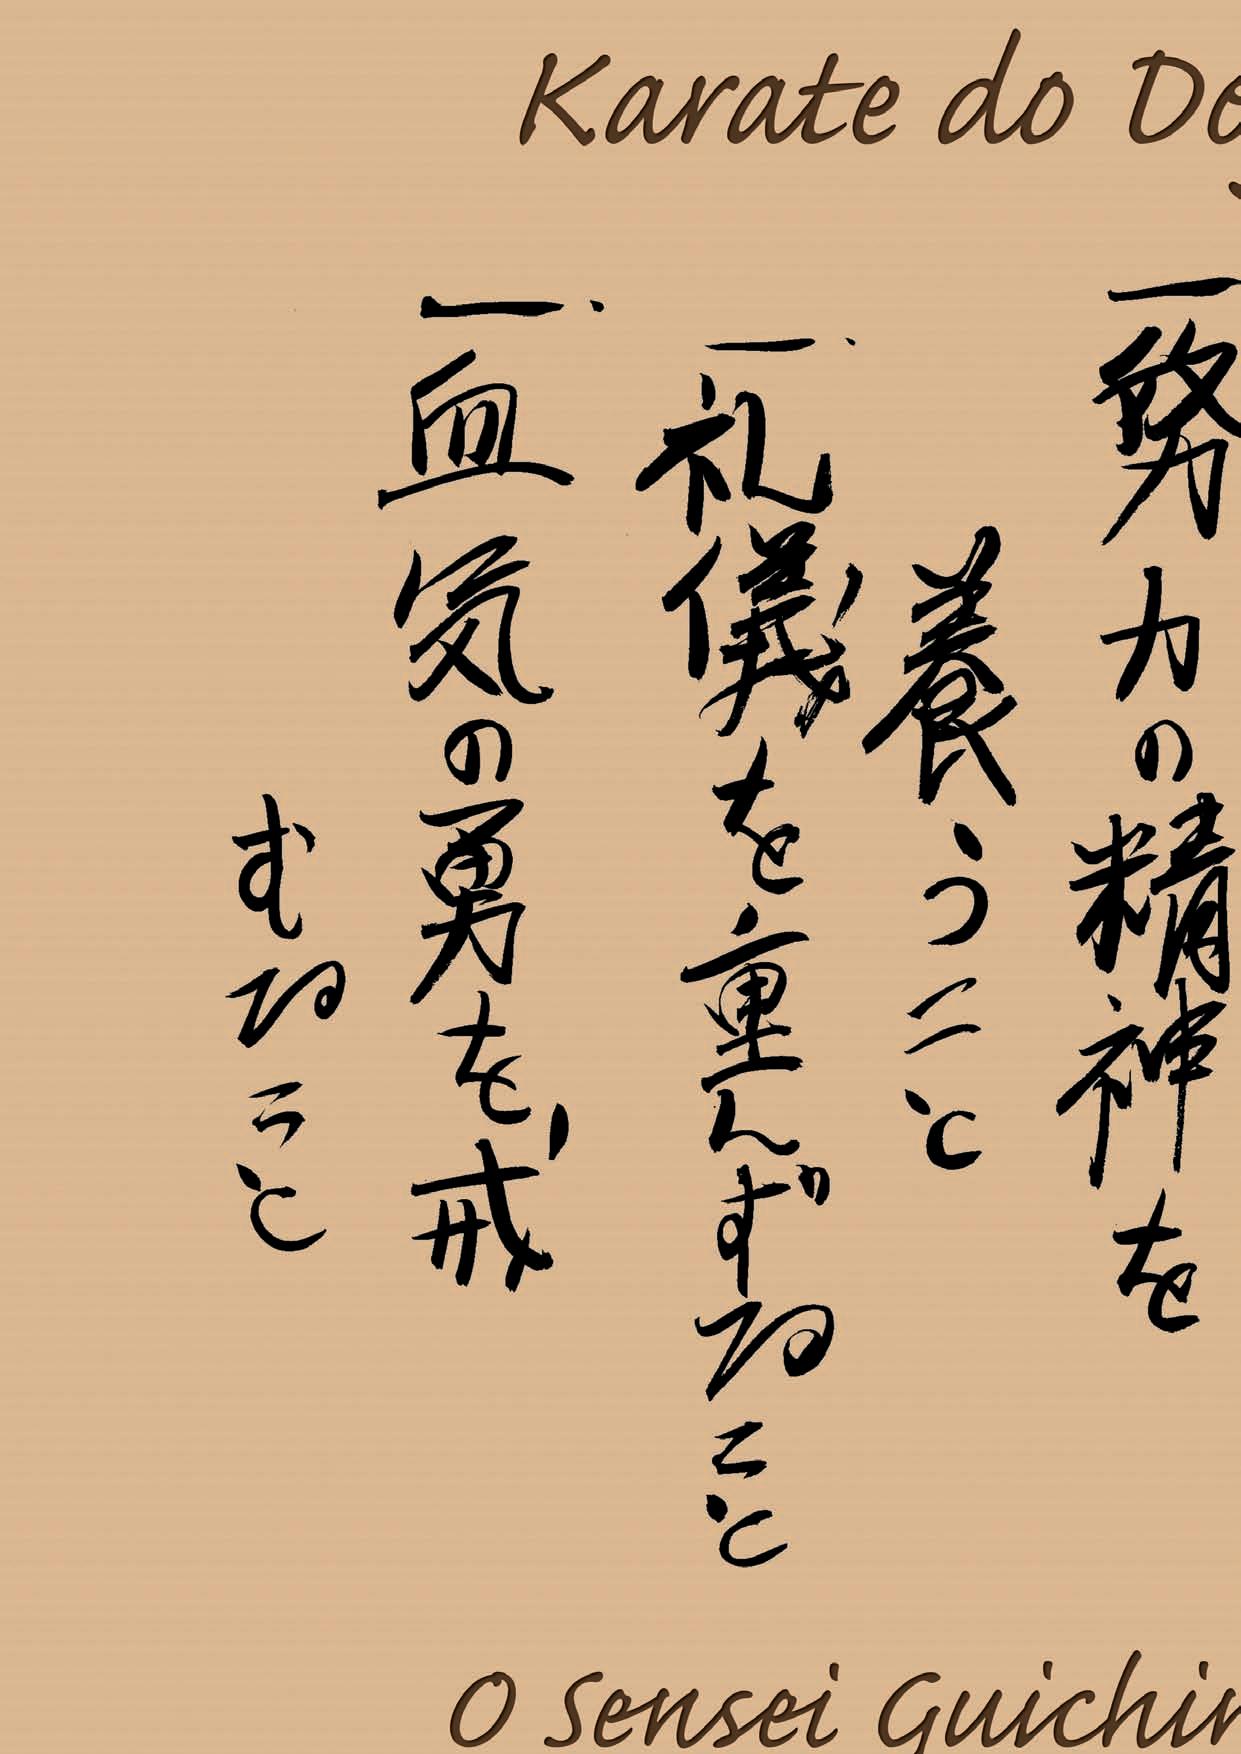 Karate do De
一努力の精神を
養うこと
一、礼儀を重んずること
一、血気の勇を戒
むること
O Sensei Guichin